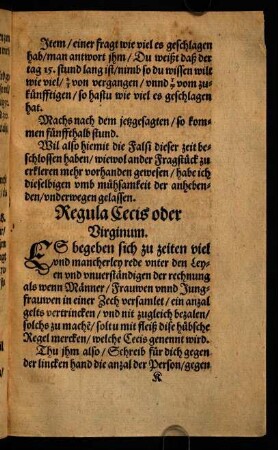 Item / einer fragt wie viel es geschlagen
hab / man antwort jhm / Du weißt daß der
tag 15. stund lang ist / nimb so du wissen wilt
wie viel / von vergangen / vnnd vom zu-
künfftigen / so hastu wie viel es geschlagen
hat.
Machs nach dem jetzgesagten / so kom-
men fünffthalb stund.
Wil also hiemit die Falsi dieser zeit be-
schlossen haben / wiewol ander Fragstück zu
erkleren mehr vorhanden gewesen / habe ich
dieselbigen vmb mühsamkeit der anheben-
den / vnderwegen gelassen.
Regula Cecis oder
Virginum.
ES begeben sich zu zeiten viel
vnd mancherley rede vnter den Ley-
en vnd vnuerständigen der rechnung
als wenn Männer / Frauwen vnnd Jung-
frauwen in einer Zech versamlet / ein anzal
gelts vertrincken / vnd nit zugleich bezalen /
solchs zu mach&#x0113; / soltu mit fleiß diß hübsche
Regel mercken / welche Cecis genennt wird.
Thu jhm also / Schreib für dich gegen
der lincken hand die anzal der Person / gegen
K